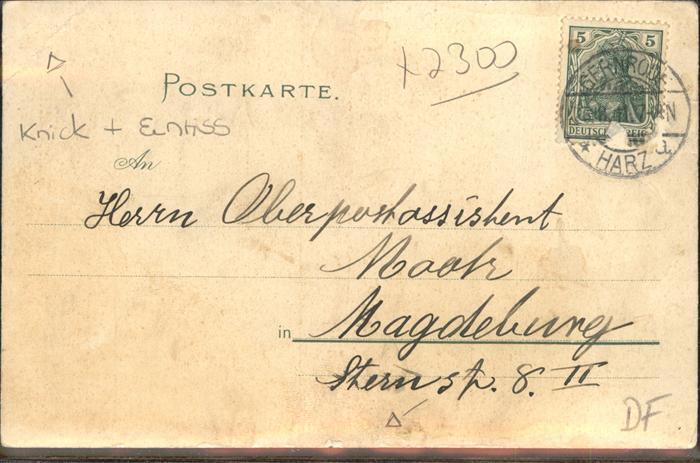 5 5
x2300
GERNRODE
POSTKARTE.
DEUTSCHES REICH
HARZ
Knick + Einriss
An
Herrn Oberpostassistent
in Magdeburg
Sternstr. 8. II
DF